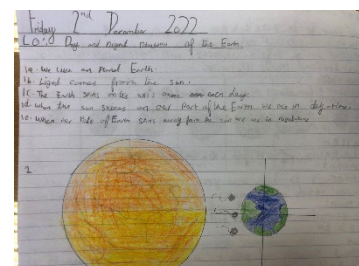 Friday 2nd December 2022
LO: Day and Night because of the Earth
1a. We live on Planet Earth.
1b. Light comes from the sun.
1c. The Earth spins on its axis once each day.
1d. When the sun shines on our part of the Earth we are in day-time.
1e. When our side of Earth spins away from the sun we are in
2